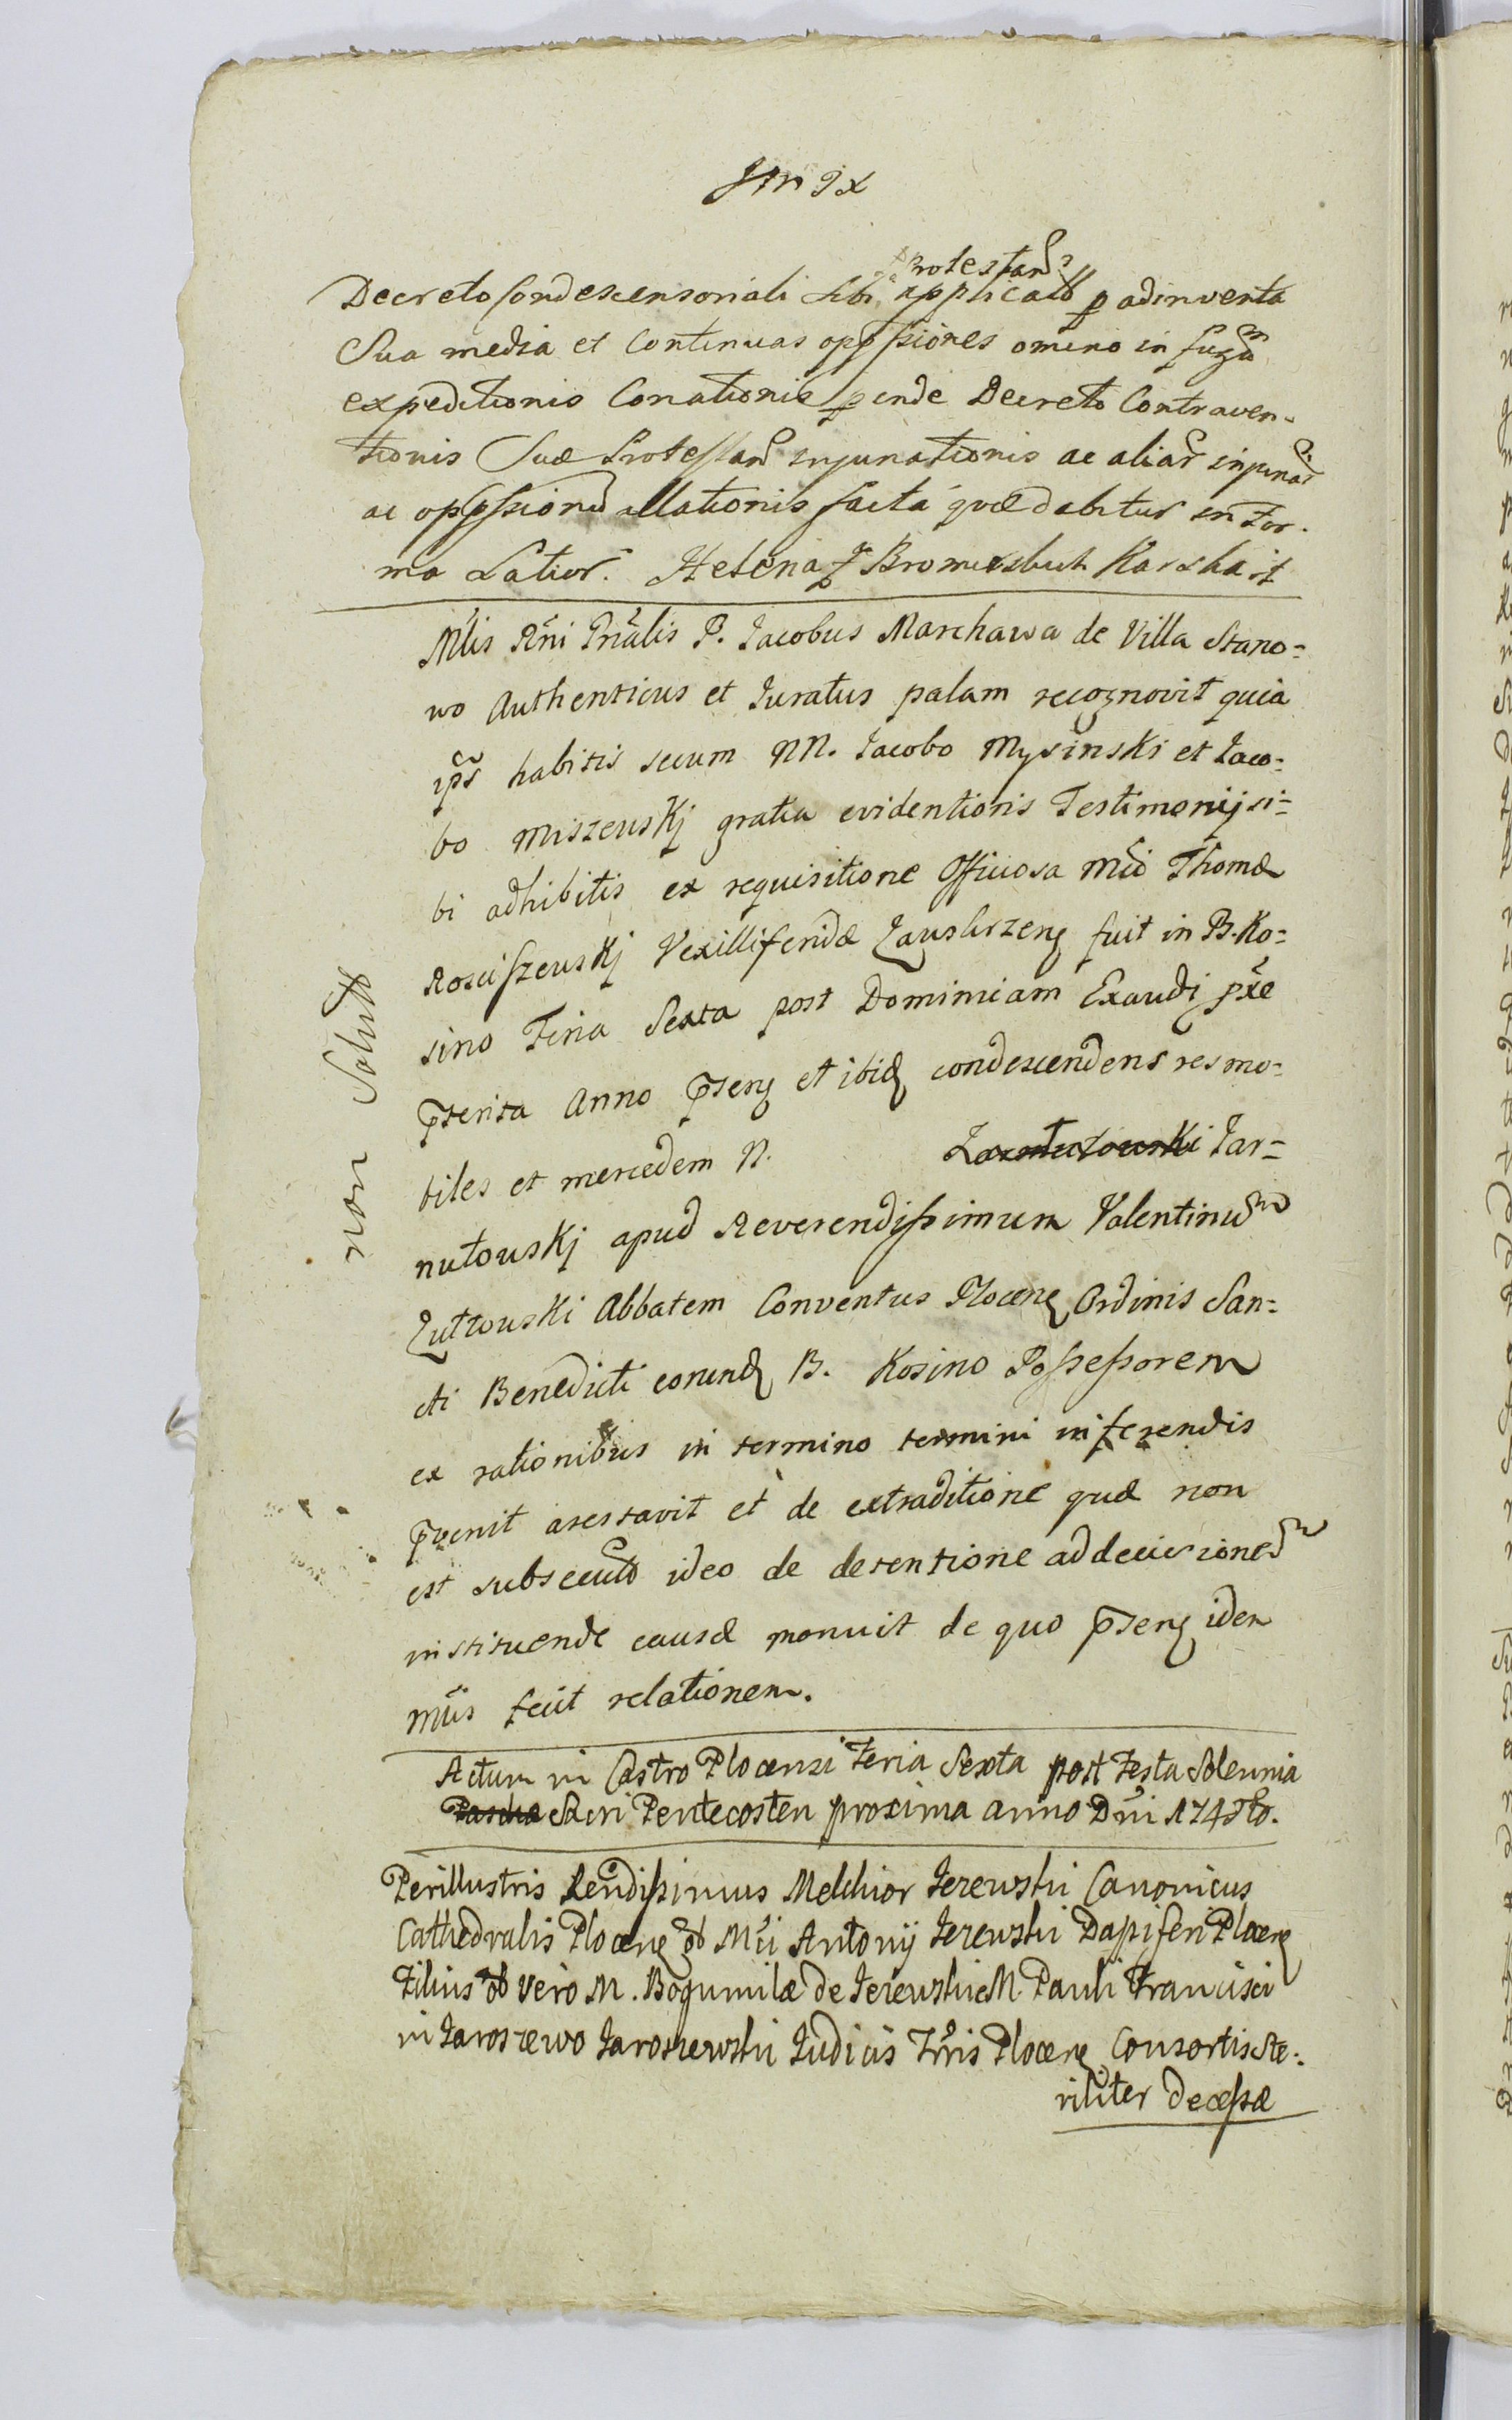 Protestan
Decreto Condescensoriali sibi applicato p adinventa
Sua media et Continuas opp̄ssiones omīno in fugam
expeditionis Conationis p inde Decreto Contraven-
tionis Suæ Protestan injuriationis ac aliar injuriar
ac opp̄ssionū illationis facta quæ dabitur in For-
ma Latior. Helena z Bromirskich Karska
Mītis Rñi Gñalis P. Jacobus Marchawa de Villa Stano=
wo Authenticus et Juratus palam recognovit quia
ip̄s habitis secum NN. Jacobo Mysinski et Jaco=
bo Miszewskj gratia evidentioris Testimonij si=
bi adhibitis ex requisitione Officiosa Mci Thomæ
Rosciszewskj Vexilliferidæ Zawskrzen fuit in B. Ko=
sino Feria Sexta post Dominicam Exaudi pxe
pterita Anno pñti et ibid condescendens res mo=
biles et mercedem N. Jar=
nutowskj apud Reverendissimum Valentinum
Zutowski Abbatem Conventus Plocen Ordinis San=
cti Benedicti eorund B. Kosino Possessorem
ex rationibus in termino termini inferendis
pvenit arestavit et de extraditione quæ non
est subsecuta ideo de detentione ad decisionem
instituendæ causæ monuit de quo pñti idem
Mīis fecit relationem.
non Solut
Actum in Castro Plocensi Feria Sexta post Festa Solennia
Pascha Sacri Pentecosten proxima anno Dñi 174
Perillustris Rendissimus Melchior Jezewski Canonicus
Cathedralis Plocen ol Mci Antonij Jezewski Dapiferi Plocen
Filius ol vero M. Bogumilæ de Jezewskie M. Pauli Francisci
in Jaroszewo Jaroszewski Judicis Trris Plocen Consortis ste=
riliter decessæ